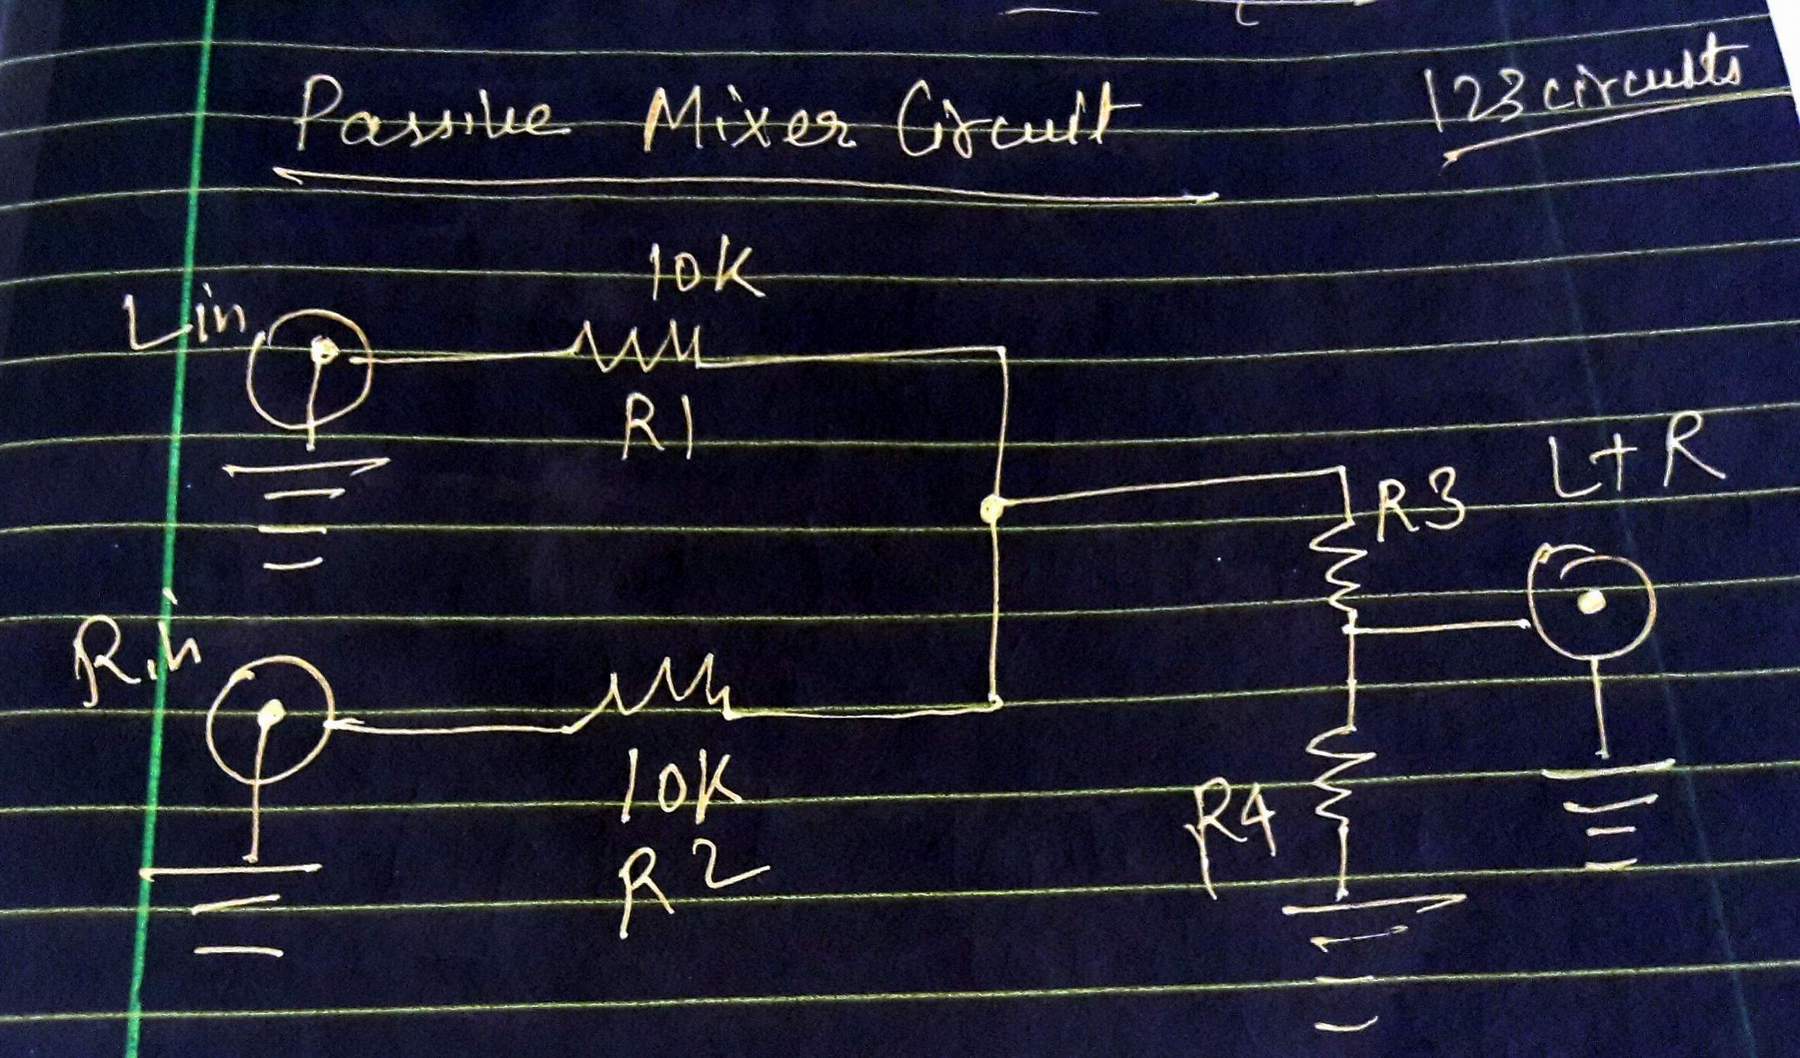 Passive Mixer Circuit
123 circuits
10K
Lin
R1
L+R
R3
Rin
10K
R4
R2